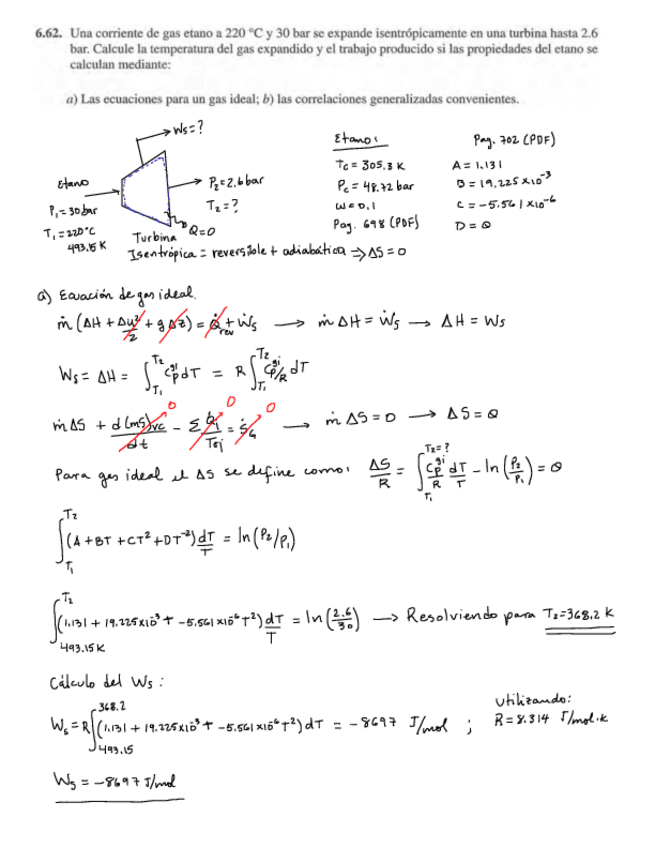 6.62. Una corriente de gas etano a 220 °C y 30 bar se expande isentrópicamente en una turbina hasta 2.6
bar. Calcule la temperatura del gas expandido y el trabajo producido si las propiedades del etano se
calculan mediante:
a) Las ecuaciones para un gas ideal; b) las correlaciones generalizadas convenientes.
Ws=?
Etano
P₁=30bar
T₁=220°C
493.15 K
P₂=2.6bar
T₂=?
Q=0
Turbina
Isentrópica = reversible + adiabática ⇒ ΔS=0
Etano:
Tc = 305.3 K
Pc = 48.72 bar
W = 0.1
Pag. 698 (PDF)
Pag. 702 (PDF)
A = 1.131
B = 19.225x10⁻³
C = -5.561x10⁻⁶
D = 0
a) Ecuación de gas ideal.
ṁ(ΔH + Δu²/2 + gΔz) = Q̇rev + Ẇs → ṁΔH = Ẇs → ΔH = Ws
Ws = ΔH = ∫T₁^T₂ Cp^gi dT = R∫T₁^T₂ Cp^gi/R dT
ṁΔS + d(mS)vc/dt - Σ Q̇j/Tσj = ṠG → ṁΔS=0 → ΔS=0
0 0 0
Para gas ideal el ΔS se define como: ΔS/R = ∫T₁^T₂=? Cp^gi/R dT/T - ln(P₂/P₁) = 0
∫T₁^T₂ (A+BT+CT²+DT⁻²)dT/T = ln(P₂/P₁)
∫493.15K^T₂ (1.131 + 19.225x10⁻³T -5.561x10⁻⁶T²)dT/T = ln(2.6/30) → Resolviendo para T₂=368.2 K
Cálculo del Ws:
Ws=R∫493.15^368.2 (1.131 + 19.225x10⁻³T -5.561x10⁻⁶T²)dT = -8697 J/mol ;
Utilizando:
R=8.314 J/mol·K
Ws = -8697 J/mol